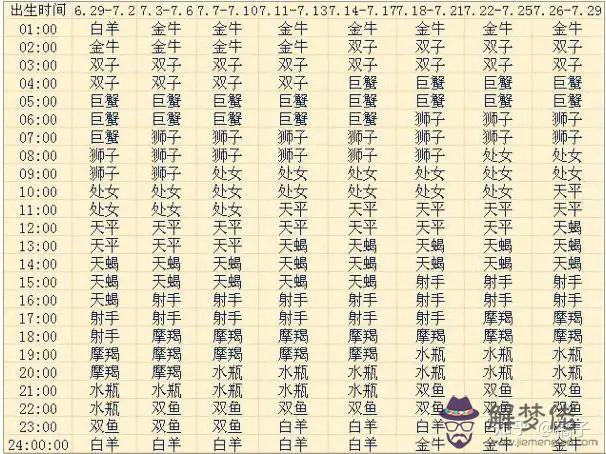 出生时间 6.29-7.2 7.3-7.6 7.7-7.10 7.11-7.13 7.14-7.17 7.18-7.21 7.22-7.25 7.26-7.29
01:00 白羊 金牛 金牛 金牛 金牛 金牛 金牛 金牛
02:00 金牛 金牛 金牛 金牛 双子 双子 双子 双子
03:00 双子 双子 双子 双子 双子 双子 双子 双子
04:00 双子 双子 双子 双子 巨蟹 巨蟹 巨蟹 巨蟹
05:00 巨蟹 巨蟹 巨蟹 巨蟹 巨蟹 巨蟹 巨蟹 巨蟹
06:00 巨蟹 巨蟹 巨蟹 巨蟹 巨蟹 狮子 狮子 狮子
07:00 巨蟹 狮子 狮子 狮子 狮子 狮子 狮子 狮子
08:00 狮子 狮子 狮子 狮子 狮子 狮子 处女 处女
09:00 狮子 狮子 处女 处女 处女 处女 处女 处女
10:00 处女 处女 处女 处女 处女 处女 处女 天平
11:00 处女 处女 处女 天平 天平 天平 天平 天平
12:00 天平 天平 天平 天平 天平 天平 天平 天蝎
13:00 天平 天平 天平 天蝎 天蝎 天蝎 天蝎 天蝎
14:00 天蝎 天蝎 天蝎 天蝎 天蝎 天蝎 天蝎 天蝎
15:00 天蝎 天蝎 天蝎 天蝎 天蝎 射手 射手 射手
16:00 天蝎 射手 射手 射手 射手 射手 射手 射手
17:00 射手 射手 射手 射手 射手 射手 摩羯 摩羯
18:00 射手 摩羯 摩羯 摩羯 摩羯 摩羯 摩羯 摩羯
19:00 摩羯 摩羯 摩羯 摩羯 摩羯 水瓶 水瓶 水瓶
20:00 摩羯 摩羯 水瓶 水瓶 水瓶 水瓶 水瓶 水瓶
21:00 水瓶 水瓶 水瓶 水瓶 水瓶 双鱼 双鱼 双鱼
22:00 水瓶 双鱼 双鱼 双鱼 双鱼 双鱼
23:00 双鱼 双鱼 双鱼 白羊 白羊 白羊
24:00:00 白羊 白羊 白羊 白羊 白羊 金牛 金牛 金牛
解梦佬
www.jiemenglao.com